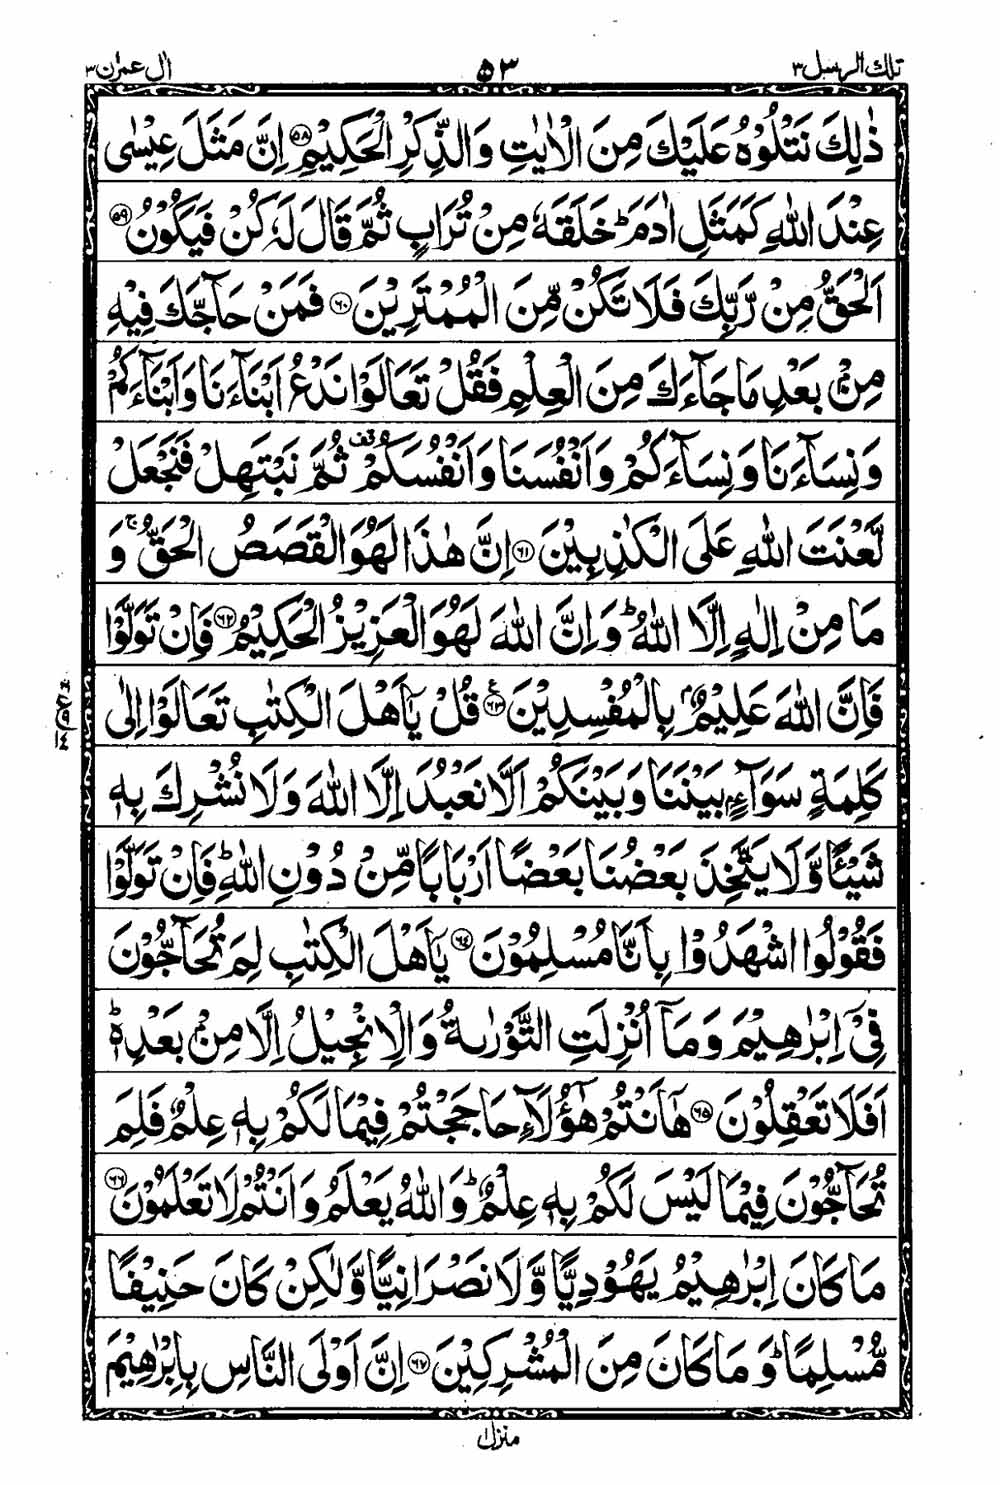 تلك الرسل ٣ ٥٣ اٰل عمرٰن ٣
ذٰلِكَ نَتْلُوْهُ عَلَيْكَ مِنَ الْاٰيٰتِ وَالذِّكْرِ الْحَكِيْمِ ﴿٥٨﴾ اِنَّ مَثَلَ عِيْسٰى
عِنْدَ اللّٰهِ كَمَثَلِ اٰدَمَ ؕ خَلَقَهٗ مِنْ تُرَابٍ ثُمَّ قَالَ لَهٗ كُنْ فَيَكُوْنُ ﴿٥٩﴾
اَلْحَقُّ مِنْ رَّبِّكَ فَلَا تَكُنْ مِّنَ الْمُمْتَرِيْنَ ﴿٦٠﴾ فَمَنْ حَآجَّكَ فِيْهِ
مِنْۢ بَعْدِ مَا جَآءَكَ مِنَ الْعِلْمِ فَقُلْ تَعَالَوْا نَدْعُ اَبْنَآءَنَا وَاَبْنَآءَكُمْ
وَنِسَآءَنَا وَنِسَآءَكُمْ وَاَنْفُسَنَا وَاَنْفُسَكُمْ قف ثُمَّ نَبْتَهِلْ فَنَجْعَلْ
لَّعْنَتَ اللّٰهِ عَلَى الْكٰذِبِيْنَ ﴿٦١﴾ اِنَّ هٰذَا لَهُوَ الْقَصَصُ الْحَقُّ ۚ وَ
مَا مِنْ اِلٰهٍ اِلَّا اللّٰهُ ؕ وَاِنَّ اللّٰهَ لَهُوَ الْعَزِيْزُ الْحَكِيْمُ ﴿٦٢﴾ فَاِنْ تَوَلَّوْا
فَاِنَّ اللّٰهَ عَلِيْمٌۢ بِالْمُفْسِدِيْنَ ﴿٦٣﴾ ع قُلْ يٰٓاَهْلَ الْكِتٰبِ تَعَالَوْا اِلٰى
كَلِمَةٍ سَوَآءٍۭ بَيْنَنَا وَبَيْنَكُمْ اَلَّا نَعْبُدَ اِلَّا اللّٰهَ وَلَا نُشْرِكَ بِهٖ
شَيْـًٔا وَّلَا يَتَّخِذَ بَعْضُنَا بَعْضًا اَرْبَابًا مِّنْ دُوْنِ اللّٰهِ ؕ فَاِنْ تَوَلَّوْا
فَقُوْلُوا اشْهَدُوْا بِاَنَّا مُسْلِمُوْنَ ﴿٦٤﴾ يٰٓاَهْلَ الْكِتٰبِ لِمَ تُحَآجُّوْنَ
فِيْٓ اِبْرٰهِيْمَ وَمَآ اُنْزِلَتِ التَّوْرٰىةُ وَالْاِنْجِيْلُ اِلَّا مِنْۢ بَعْدِهٖ ؕ
اَفَلَا تَعْقِلُوْنَ ﴿٦٥﴾ هٰٓاَنْتُمْ هٰٓؤُلَآءِ حَاجَجْتُمْ فِيْمَا لَكُمْ بِهٖ عِلْمٌ فَلِمَ
تُحَآجُّوْنَ فِيْمَا لَيْسَ لَكُمْ بِهٖ عِلْمٌ ؕ وَاللّٰهُ يَعْلَمُ وَاَنْتُمْ لَا تَعْلَمُوْنَ ﴿٦٦﴾
مَا كَانَ اِبْرٰهِيْمُ يَهُوْدِيًّا وَّلَا نَصْرَانِيًّا وَّلٰكِنْ كَانَ حَنِيْفًا
مُّسْلِمًا ؕ وَمَا كَانَ مِنَ الْمُشْرِكِيْنَ ﴿٦٧﴾ اِنَّ اَوْلَى النَّاسِ بِاِبْرٰهِيْمَ
منزل ١